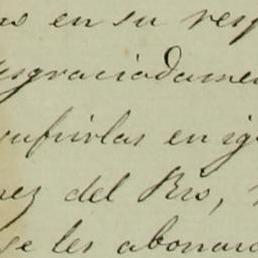 os en su resp
esgraciadamen
sufrirlas en ig
nez del Rio,
se les abonara